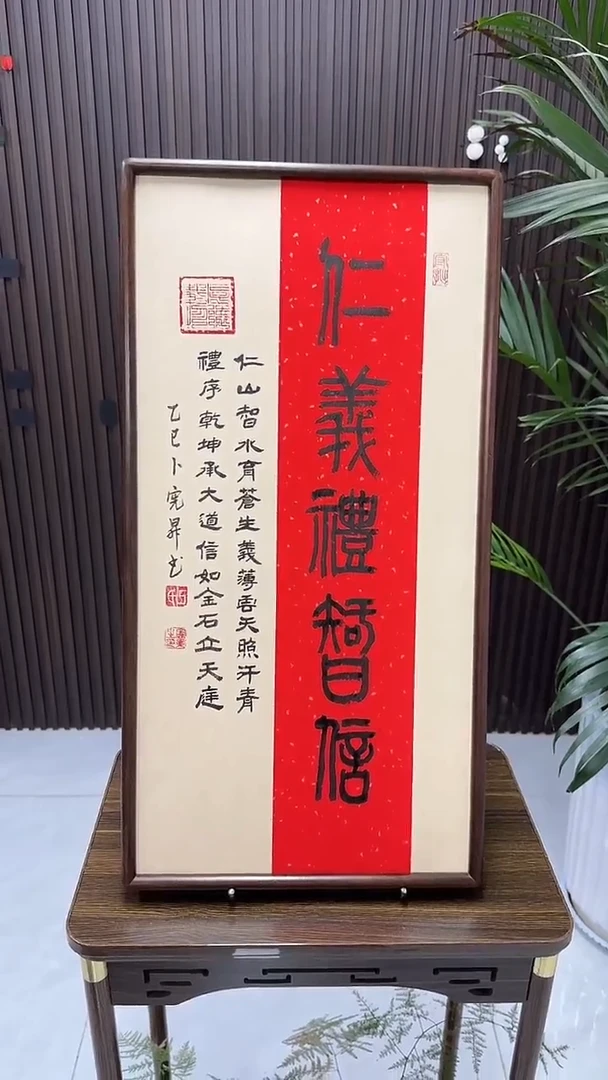 仁義禮智信
仁山智水育蒼生義薄雲天照汗青
禮序乾坤承大道信如金石立天庭
乙巳卜宪昇书